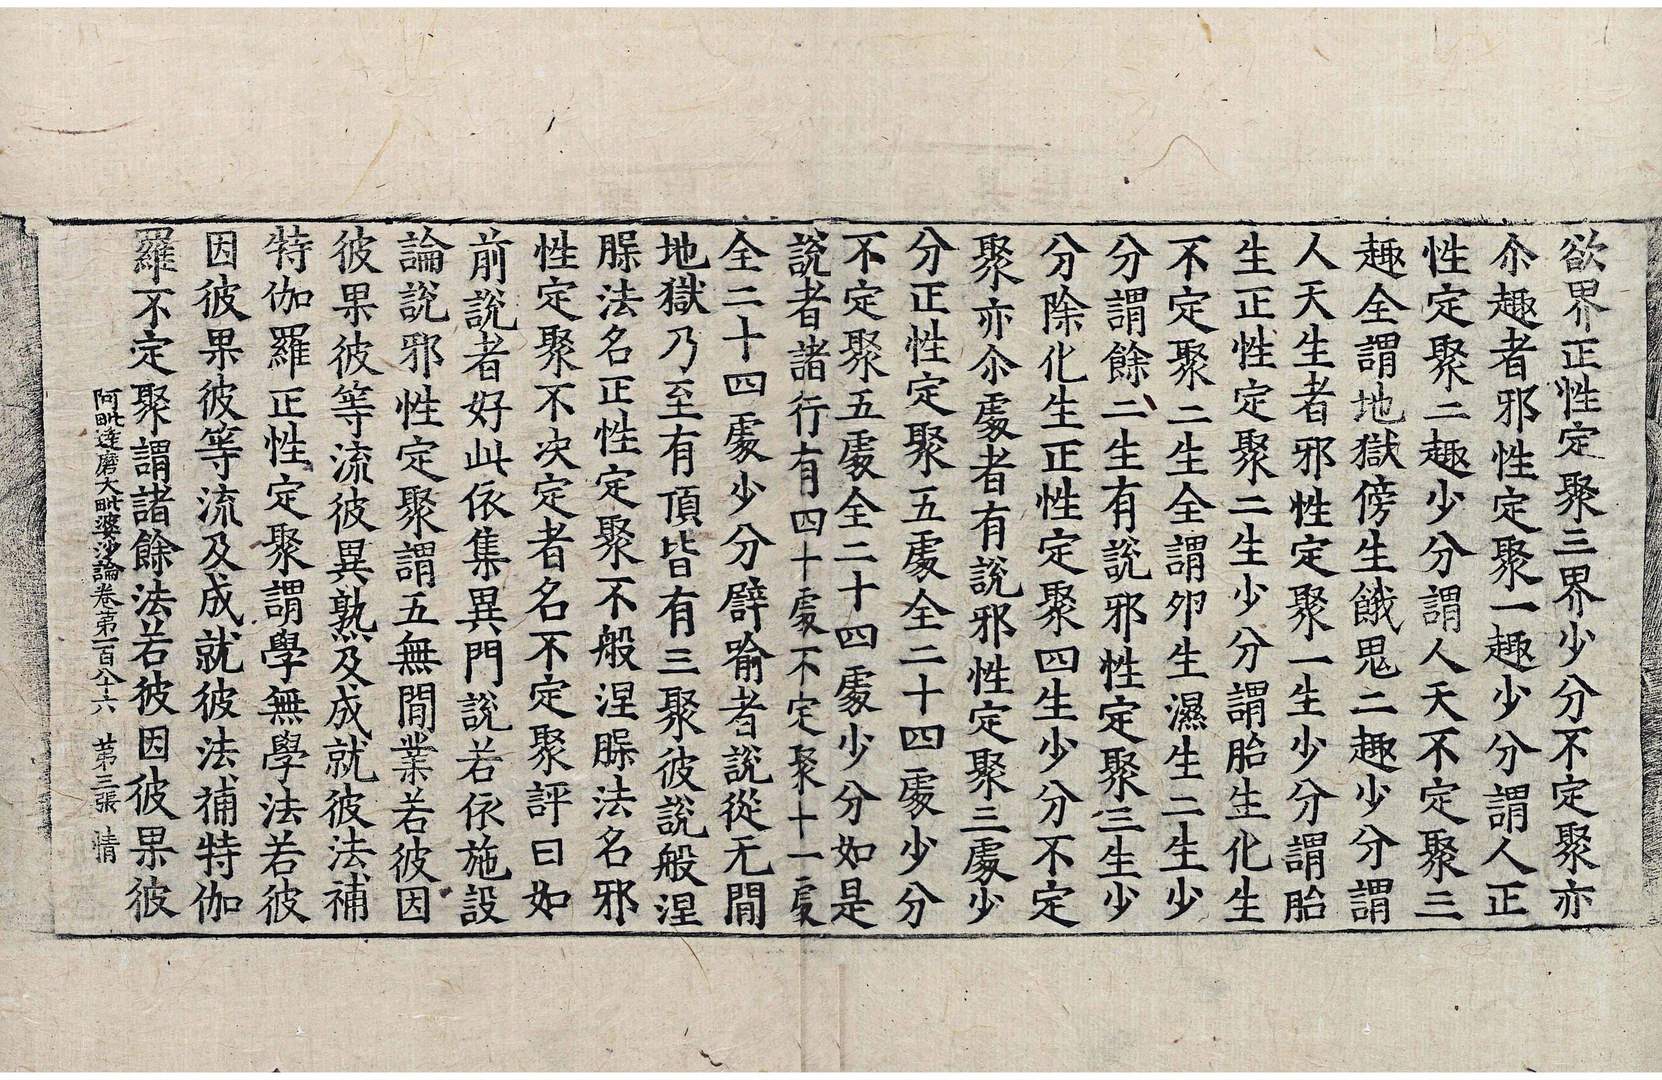 欲界正性定聚三界少分不定聚亦
尒趣者邪性定聚一趣少分謂人正
性定聚二趣少分謂人天不定聚三
趣全謂地獄傍生餓鬼二趣少分謂
人天生者邪性定聚一生少分謂胎
生正性定聚二生少分謂胎生化生
不定聚二生全謂卵生濕生二生少
分謂餘二生有說邪性定聚三生少
分除化生正性定聚四生少分不定
聚亦尒處者有說邪性定聚三處少
分正性定聚五處全二十四處少分
不定聚五處全二十四處少分如是
說者諸行有四十處不定聚十一處
全二十四處少分譬喻者說從无間
地獄乃至有頂皆有三聚彼說般涅
槃法名正性定聚不般涅槃法名邪
性定聚不决定者名不定聚評曰如
前說者好此依集異門說若依施設
論說邪性定聚謂五無間業若彼因
彼果彼等流彼異熟及成就彼法補
特伽羅正性定聚謂學無學法若彼
因彼果彼等流及成就彼法補特伽
羅不定聚謂諸餘法若彼因彼果彼
阿毗達磨大毗婆沙論卷第一百八十六 第三張 情